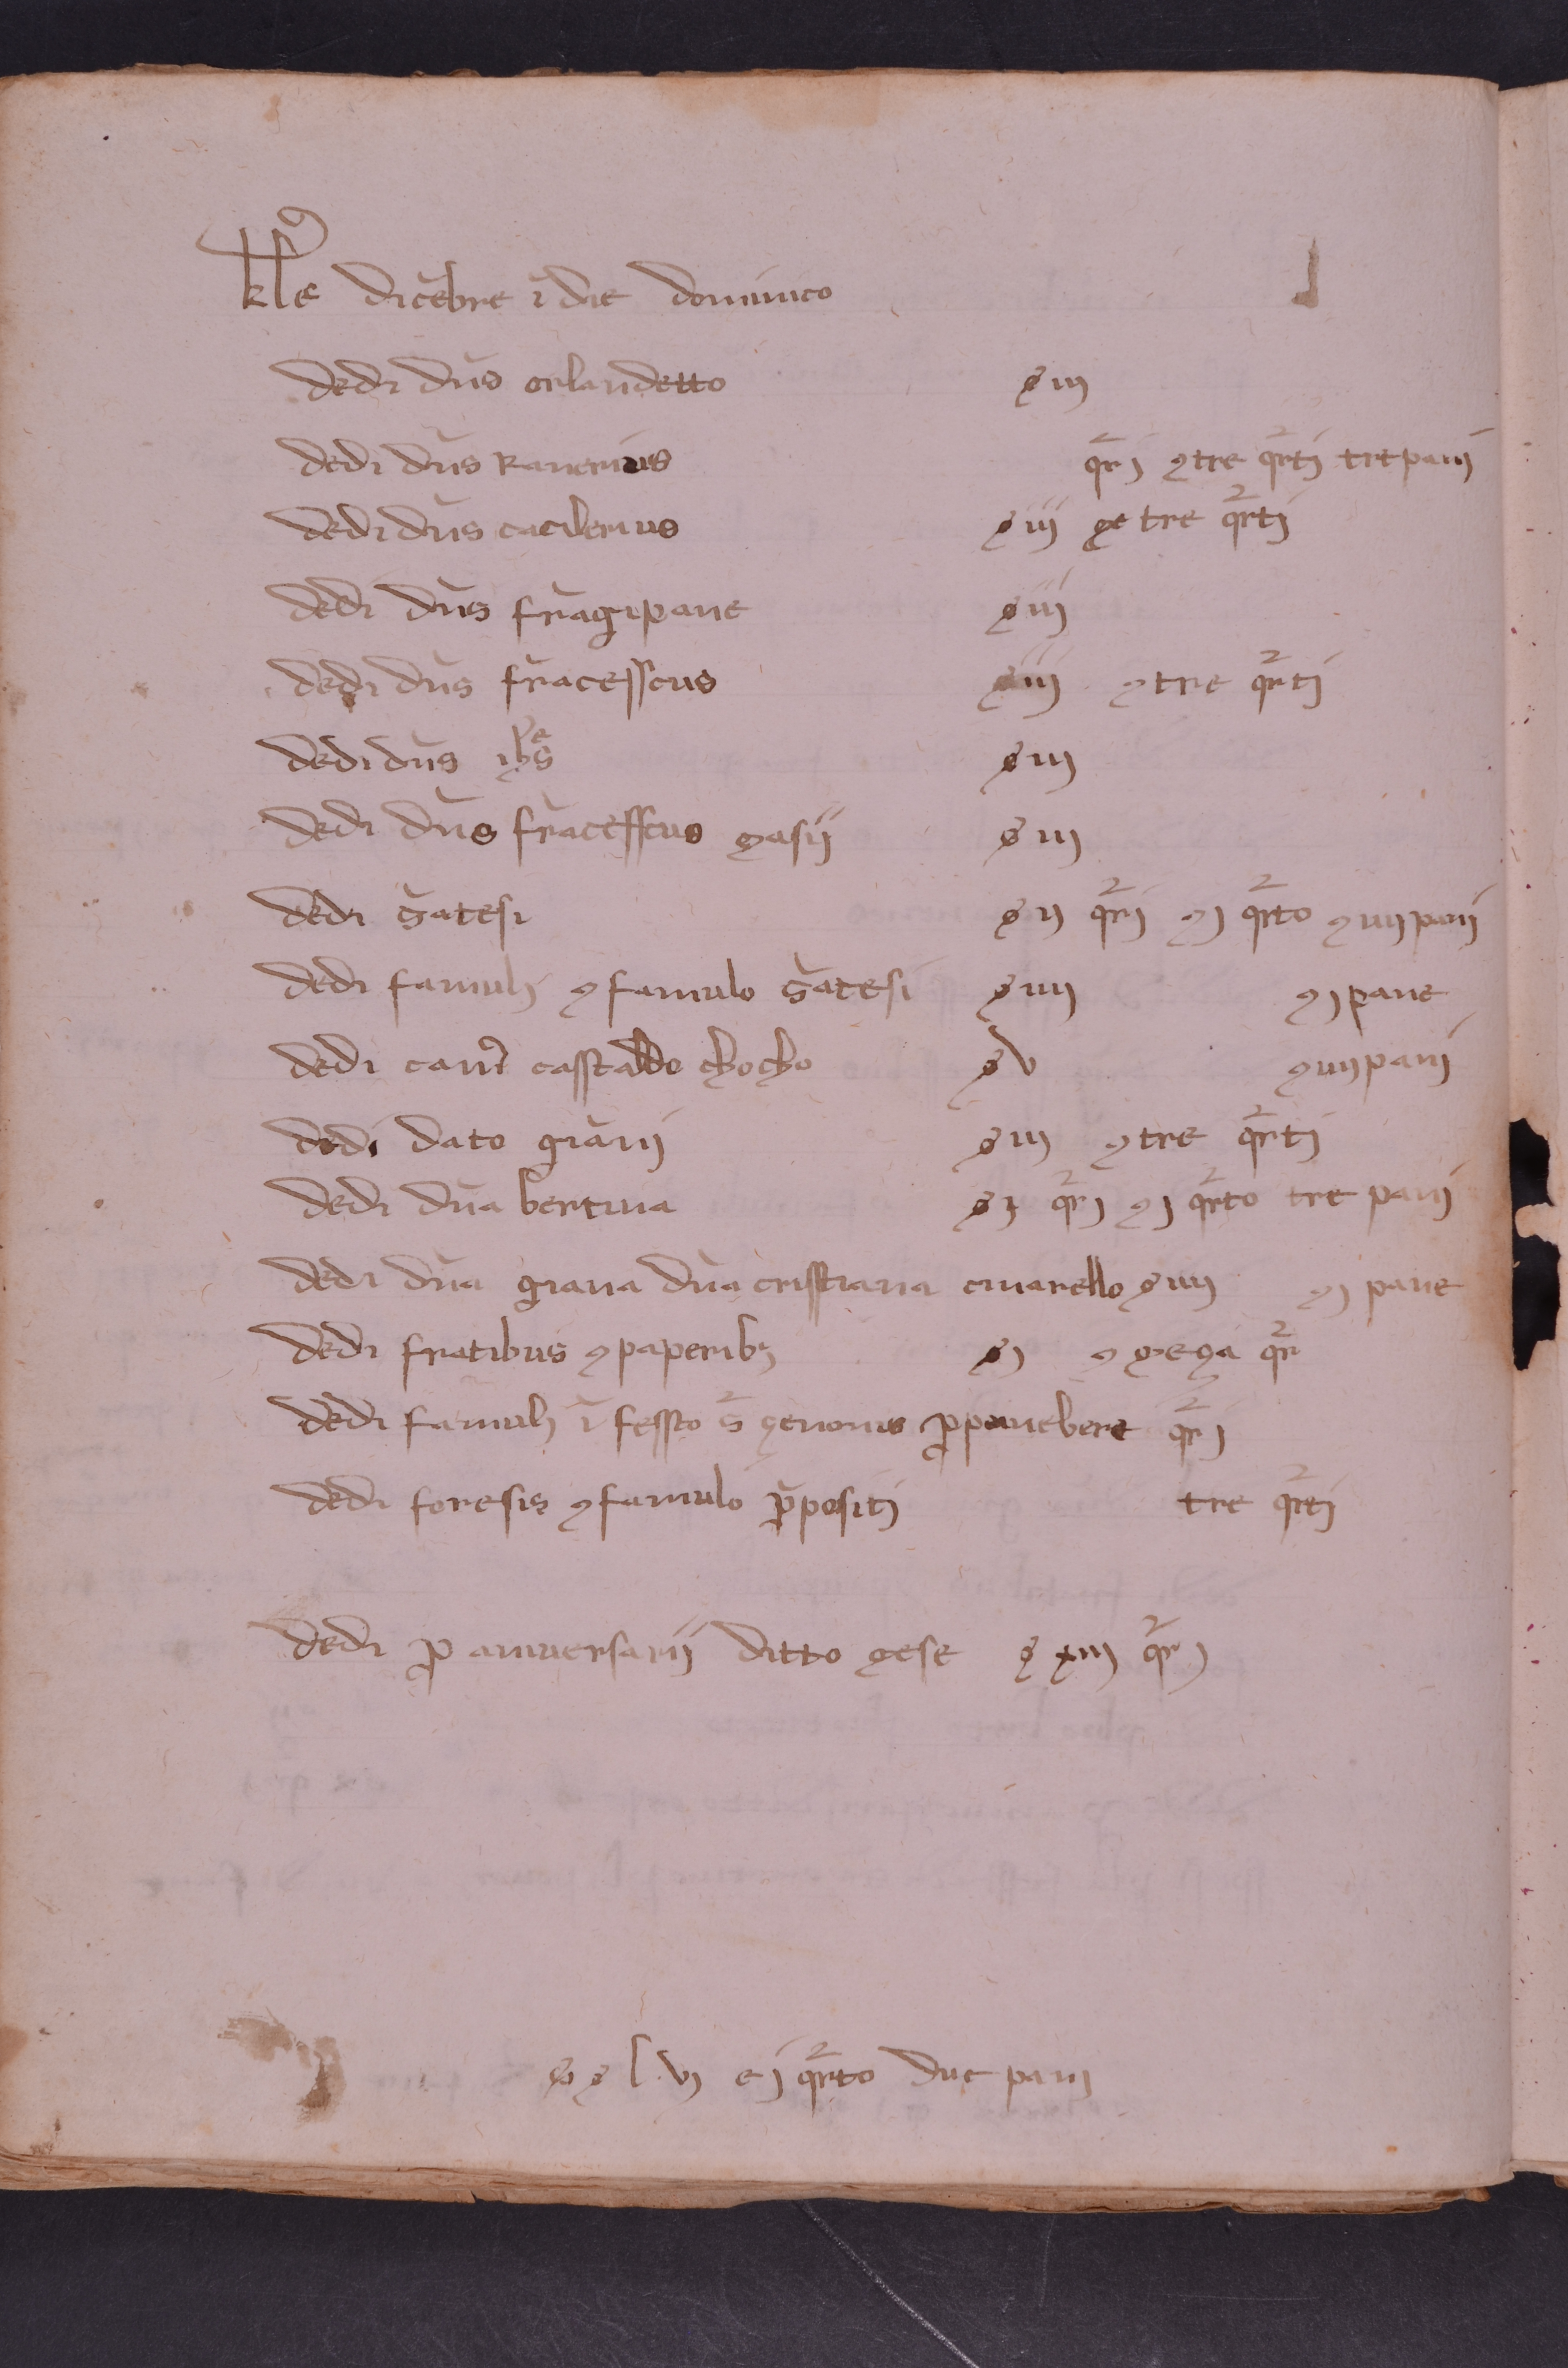 kl̄e dicēbre ī die dominico
dedi dn̄s orlandetto ꝯ iij
dedi dn̄s Ranerius qr̄j ꝯ tre qr̄tj tre panj
dedi dn̄s cacilerius ꝯ iij ꝯ tre qr̄tj
dedi dn̄s frāgipane ꝯ iij
dedi dn̄s frācesscus ꝯ iij ꝯ tre qr̄tj
dedi dn̄s ꝯ iij
dedi dn̄s frācesscus ꝯasij ꝯ iij
dedi s̄atesi ꝯ ij qr̄j ꝯ j qr̄to ꝯ iiij panj
dedi famulj ꝯ famulo s̄atesi ꝯ iiij ꝯ j pane
dedi can̄ casstaldo chocho ꝯ v ꝯ iiij panj
dedi dato grānj ꝯ iij ꝯ tre qr̄tj
dedi dn̄a bertina ꝯ j qr̄j ꝯ j qr̄to tre panj
dedi dn̄a giana dn̄a crisstiana cinarello ꝯ iiij ꝯ j pane
dedi fratibus ꝯ paperibꝫ ꝯ j ꝯ meça qr̄
dedi famulj ī fessto s̄ çenonis ꝓ pane bere qr̄j
dedi foresis ꝯ famulo p̄positj tre qr̄tj
dedi ꝓ aniuersarij ditto ꝯese ꝯ xiij qr̄j
ꝯ ꝯ l vj e j qr̄to due panj